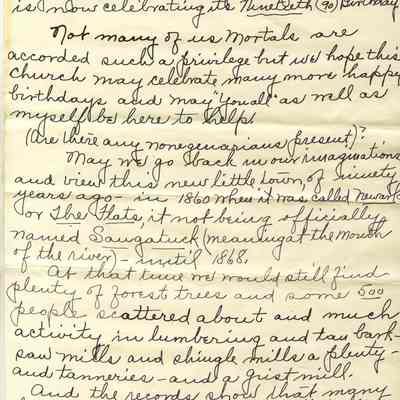 is now celebrating its Ninetieth (90) Birthday
Not many of us Mortals are
accorded such a privilege but we hope this
church may celebrate many more happy
birthdays and may "you all" as well as
myself be here to help!
(Are there any nonegenarians present)?
May we go back in our imaginations
and view this new little town, of ninety
years ago - in 1860 when it was called Newark
or The Flats, it not being officially
named Saugatuck (meaning at the Mouth
of the river) - until 1868.
At that time we would still find
plenty of forest trees and some 500
people scattered about and much
activity in lumbering and tan bark -
saw mills and shingle mills a plenty -
and tanneries - and a grist mill.
And the records show that many